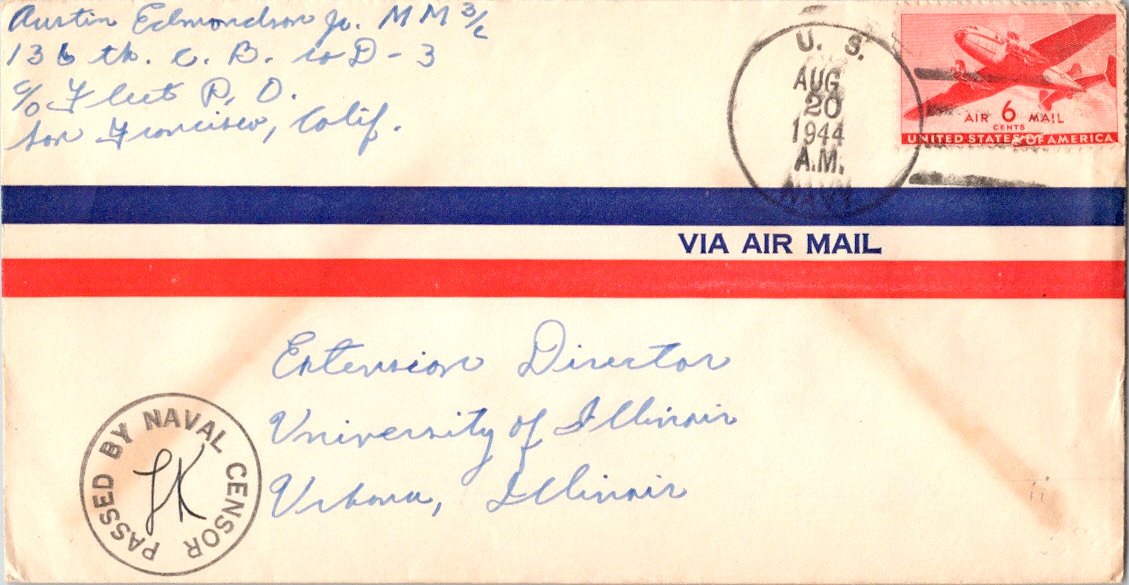 Austin Edmondson Jr. MM 3/c
136 th. C. B. Co D-3
c/o Fleet P. O.
San Francisco, Calif.
U. S.
AUG
20
1944
A.M.
NAVY
AIR 6 MAIL
CENTS
UNITED STATES OF AMERICA
VIA AIR MAIL
Extension Director
University of Illinois
Urbana, Illinois
PASSED BY NAVAL CENSOR